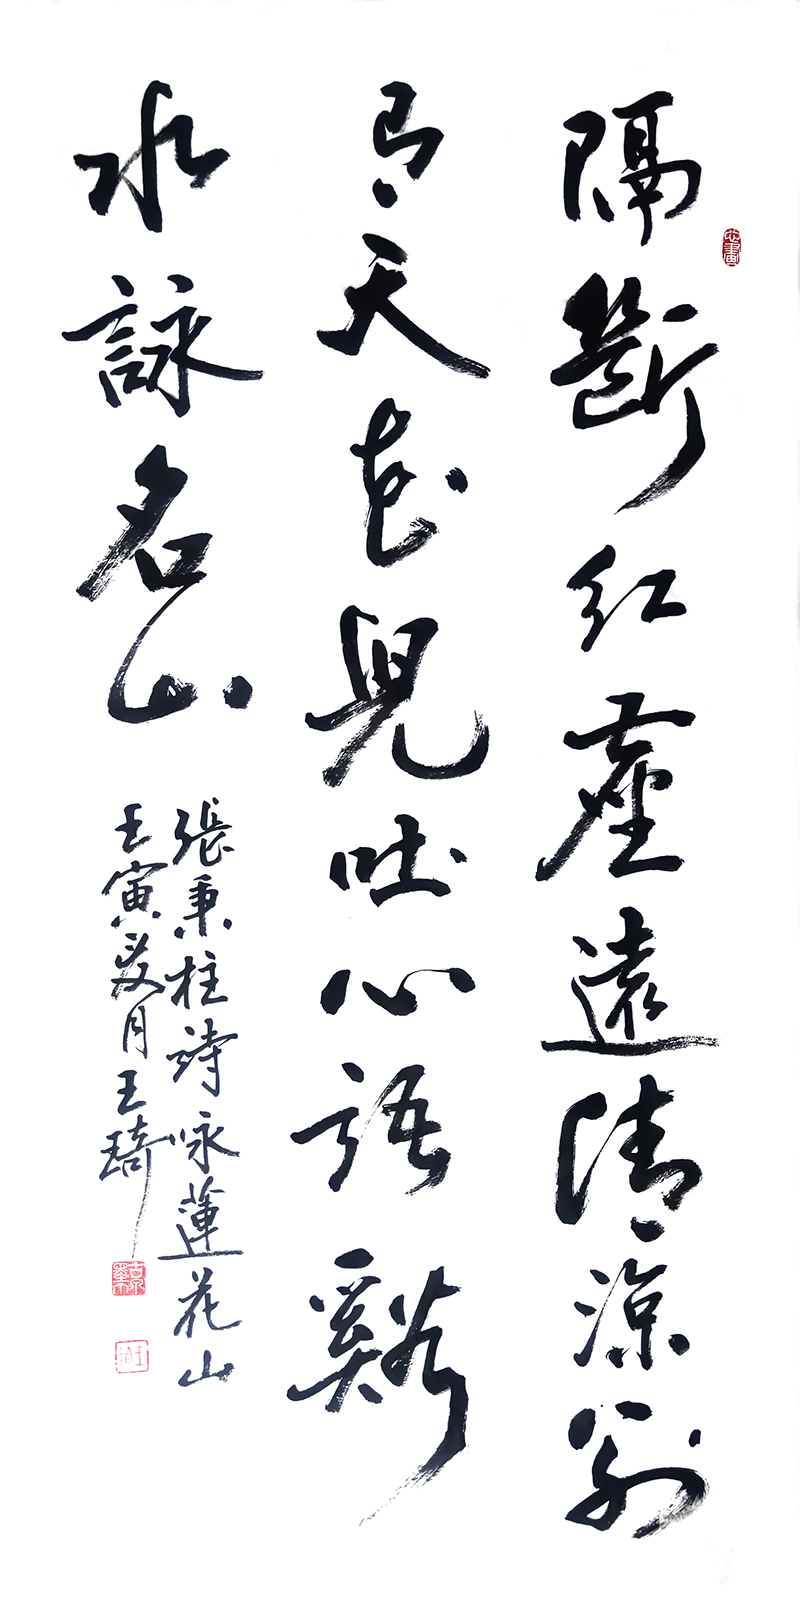 隔斷红塵遠清涼别
有天花兒吐心語谿
水詠名山
張秉柱詩咏蓮花山
壬寅夏月王琦